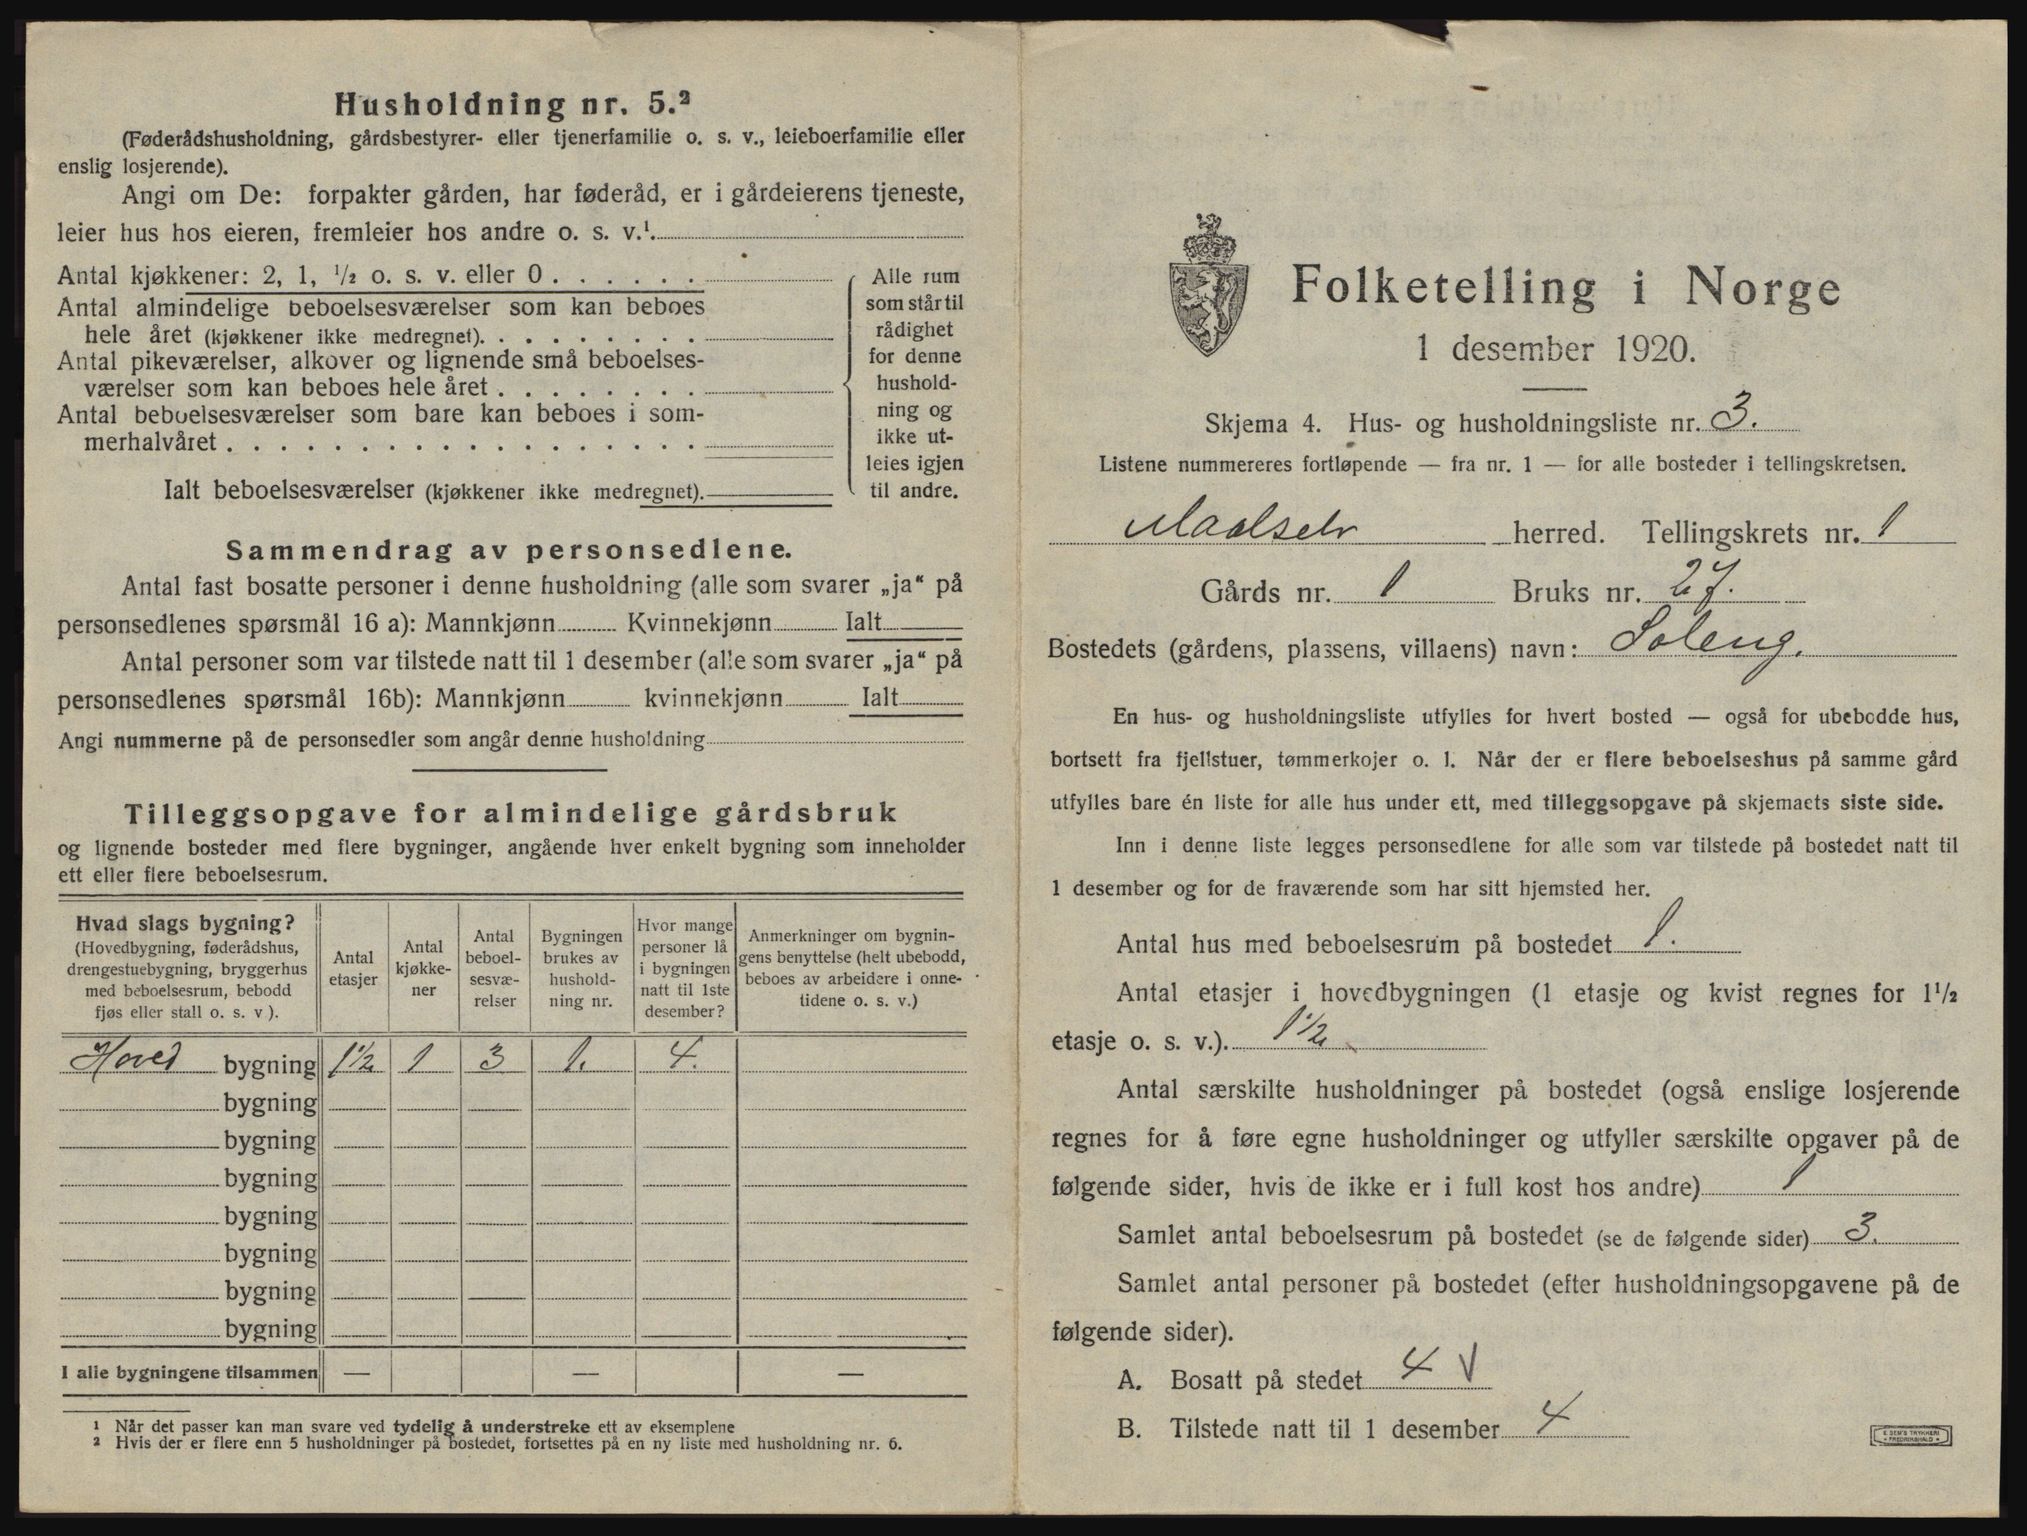 Husholdning nr. 5.²
(Føderådshusholdning, gårdsbestyrer- eller tjenerfamilie o. s. v., leieboerfamilie eller
enslig losjerende).
Angi om De: forpakter gården, har føderåd, er i gårdeierens tjeneste,
leier hus hos eieren, fremleier hos andre o. s. v.¹.
Antal kjøkkener: 2, 1, ½ o. s. v. eller 0 . . . . . .
Antal almindelige beboelsesværelser som kan beboes
hele året (kjøkkener ikke medregnet). . . . . . . . .
Antal pikeværelser, alkover og lignende små beboelses-
værelser som kan beboes hele året . . . . . . . .
Antal beboelsesværelser som bare kan beboes i som-
merhalvåret . . . . . . . . . . . . . . . . . .
Ialt beboelsesværelser (kjøkkener ikke medregnet).
Alle rum
som står til
rådighet
for denne
hushold-
ning og
ikke ut-
leies igjen
til andre.
Sammendrag av personsedlene.
Antal fast bosatte personer i denne husholdning (alle som svarer „ja“ på
personsedlenes spørsmål 16 a): Mannkjønn Kvinnekjønn Ialt
Antal personer som var tilstede natt til 1 desember (alle som svarer „ja“ på
personsedlenes spørsmål 16b): Mannkjønn kvinnekjønn Ialt
Angi nummerne på de personsedler som angår denne husholdning
Tilleggsopgave for almindelige gårdsbruk
og lignende bosteder med flere bygninger, angående hver enkelt bygning som inneholder
ett eller flere beboelsesrum.
Hvad slags bygning?
(Hovedbygning, føderådshus,
drengestuebygning, bryggerhus
med beboelsesrum, bebodd
fjøs eller stall o. s. v ).
Antal
etasjer
Antal
kjøkke-
ner
Antal
beboel-
sesvæ-
relser
Bygningen
brukes av
hushold-
ning nr.
Hvor mange
personer lå
i bygningen
natt til 1ste
desember?
Anmerkninger om bygnin-
gens benyttelse (helt ubebodd,
beboes av arbeidere i onne-
tidene o. s. v.)
Hoved bygning 1½ 1 3 1. 4.
bygning
bygning
bygning
bygning
bygning
bygning
bygning
I alle bygningene tilsammen — — —
¹ Når det passer kan man svare ved tydelig å understreke ett av eksemplene
² Hvis der er flere enn 5 husholdninger på bostedet, fortsettes på en ny liste med husholdning nr. 6.
Folketelling i Norge
1 desember 1920.
Skjema 4. Hus- og husholdningsliste nr. 3.
Listene nummereres fortløpende — fra nr. 1 — for alle bosteder i tellingskretsen.
Maalselv herred. Tellingskrets nr. 1
Gårds nr. 1 Bruks nr. 27.
Bostedets (gårdens, plassens, villaens) navn: Soleng.
En hus- og husholdningsliste utfylles for hvert bosted — også for ubebodde hus,
bortsett fra fjellstuer, tømmerkojer o. l. Når der er flere beboelseshus på samme gård
utfylles bare én liste for alle hus under ett, med tilleggsopgave på skjemaets siste side.
Inn i denne liste legges personsedlene for alle som var tilstede på bostedet natt til
1 desember og for de fraværende som har sitt hjemsted her.
Antal hus med beboelsesrum på bostedet 1.
Antal etasjer i hovedbygningen (1 etasje og kvist regnes for 1½
etasje o. s. v.). 1½
Antal særskilte husholdninger på bostedet (også enslige losjerende
regnes for å føre egne husholdninger og utfyller særskilte opgaver på de
følgende sider, hvis de ikke er i full kost hos andre) 1
Samlet antal beboelsesrum på bostedet (se de følgende sider) 3.
Samlet antal personer på bostedet (efter husholdningsopgavene på de
følgende sider).
A. Bosatt på stedet 4 √
B. Tilstede natt til 1 desember 4
E SEM'S TRYKKERI
• FREDRIKSHALD •